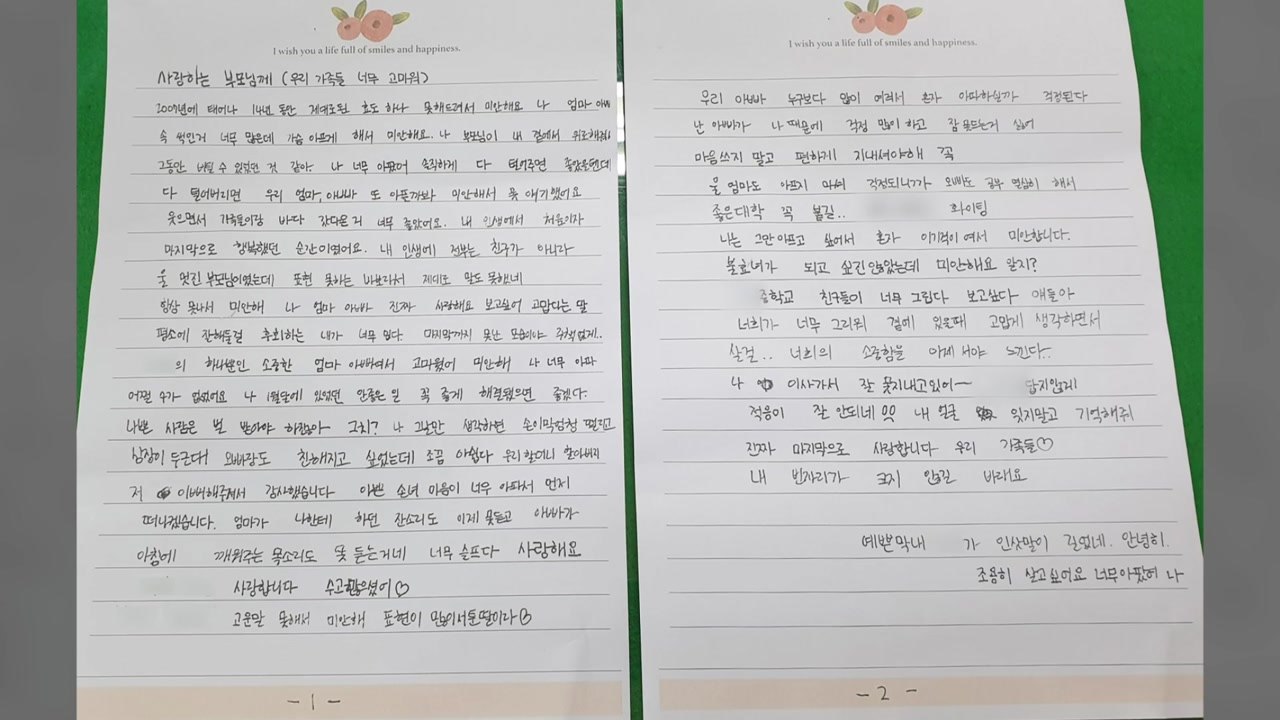 I wish you a life full of smiles and happiness.
사랑하는 부모님께 (우리 가족들 너무 고마워)
2007년에 태어나 14년 동안 제대로된 효도 하나 못해드려서 미안해요 나 엄마 아빠
속 썩인거 너무 많은데 가슴 아프게 해서 미안해요. 나 부모님이 내 곁에서 위로해줘서
그동안 버틸 수 있었던 것 같아. 나 너무 아팠어 솔직하게 다 털어주면 좋았을텐데
다 털어버리면 우리 엄마, 아빠 또 아플까봐 미안해서 못 얘기했어요
웃으면서 가족들이랑 바다 갔다온 거 너무 좋았어요. 내 인생에서 처음이자
마지막으로 행복했던 순간이였어요. 내 인생에 전부는 친구가 아니라
울 멋진 부모님이였는데 표현 못하는 바보라서 제대로 말도 못했네
항상 못나서 미안해 나 엄마 아빠 진짜 사랑해요 보고싶어 고맙다는 말
평소에 잔해둘걸 후회하는 내가 너무 밉다. 마지막까지 못난 모습이야 주책없게..
의 하나뿐인 소중한 엄마 아빠여서 고마웠어 미안해 나 너무 아파
어쩔 수가 없었어요 나 1월달에 있었던 안좋은 일 꼭 좋게 해결됐으면 좋겠다.
나쁜 사람은 벌 받아야 하잖아 그치? 나 그날만 생각하면 손이 막 엄청 떨리고
심장이 두근대 오빠랑도 친해지고 싶었는데 조끔 아쉽다 우리 할머니 할아버지
저 이뻐해주셔서 감사했습니다 아쁜 손녀 마음이 너무 아파서 먼저
떠나겠습니다. 엄마가 나한테 하던 잔소리도 이제 못듣고 아빠가
아침에 깨워주는 목소리도 못 듣는거네 너무 슬프다 사랑해요
사랑합니다 수고많으셨어♡
고운말 못해서 미안해 표현이 많이 서툰 딸이라♡
- 1 -
I wish you a life full of smiles and happiness.
우리 아빠 누구보다 많이 여려서 혼자 아파하실까 걱정된다
난 아빠가 나 때문에 걱정 많이 하고 잠 못드는거 싫어
마음쓰지 말고 편하게 지내셔야해 꼭
울 엄마도 아프지 마세여 걱정되니까 오빠도 공부 열심히 해서
좋은대학 꼭 붙길.. 화이팅
나는 그만 아프고 싶어서 혼자 이기적이여서 미안합니다.
불효녀가 되고 싶진 않았는데 미안해요 알지?
중학교 친구들이 너무 그립다 보고싶다 얘들아
너희가 너무 그리워 곁에 있을때 고맙게 생각하면서
살걸.. 너희의 소중함을 이제서야 느낀다..
나 이사가서 잘 못지내고있어~ 답지않게
적응이 잘 안되네 ㅇㅇ 내 얼굴 잊지말고 기억해줘
진짜 마지막으로 사랑합니다 우리 가족들♡
내 빈자리가 크지 않길 바래요
예쁜막내 가 인삿말이 길었네. 안녕히.
조용히 살고싶어요 너무아팠어 나
- 2 -